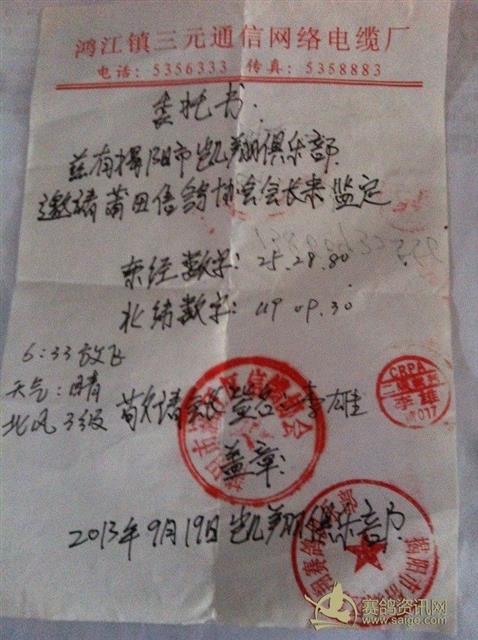 鸿江镇三元通信网络电缆厂
电话：5356333 传真：5358883
委托书.
兹有揭阳市凯翔俱乐部
邀请莆田信鸽协会会长来监定
东经数字：25.28.80
北纬数字：119.09.30
6:33放飞
天气：晴
北风3级
李雄
CRPA
李雄
盖章：
2013年9月19日凯翔俱乐部
赛鸽资讯网
www.saige.com